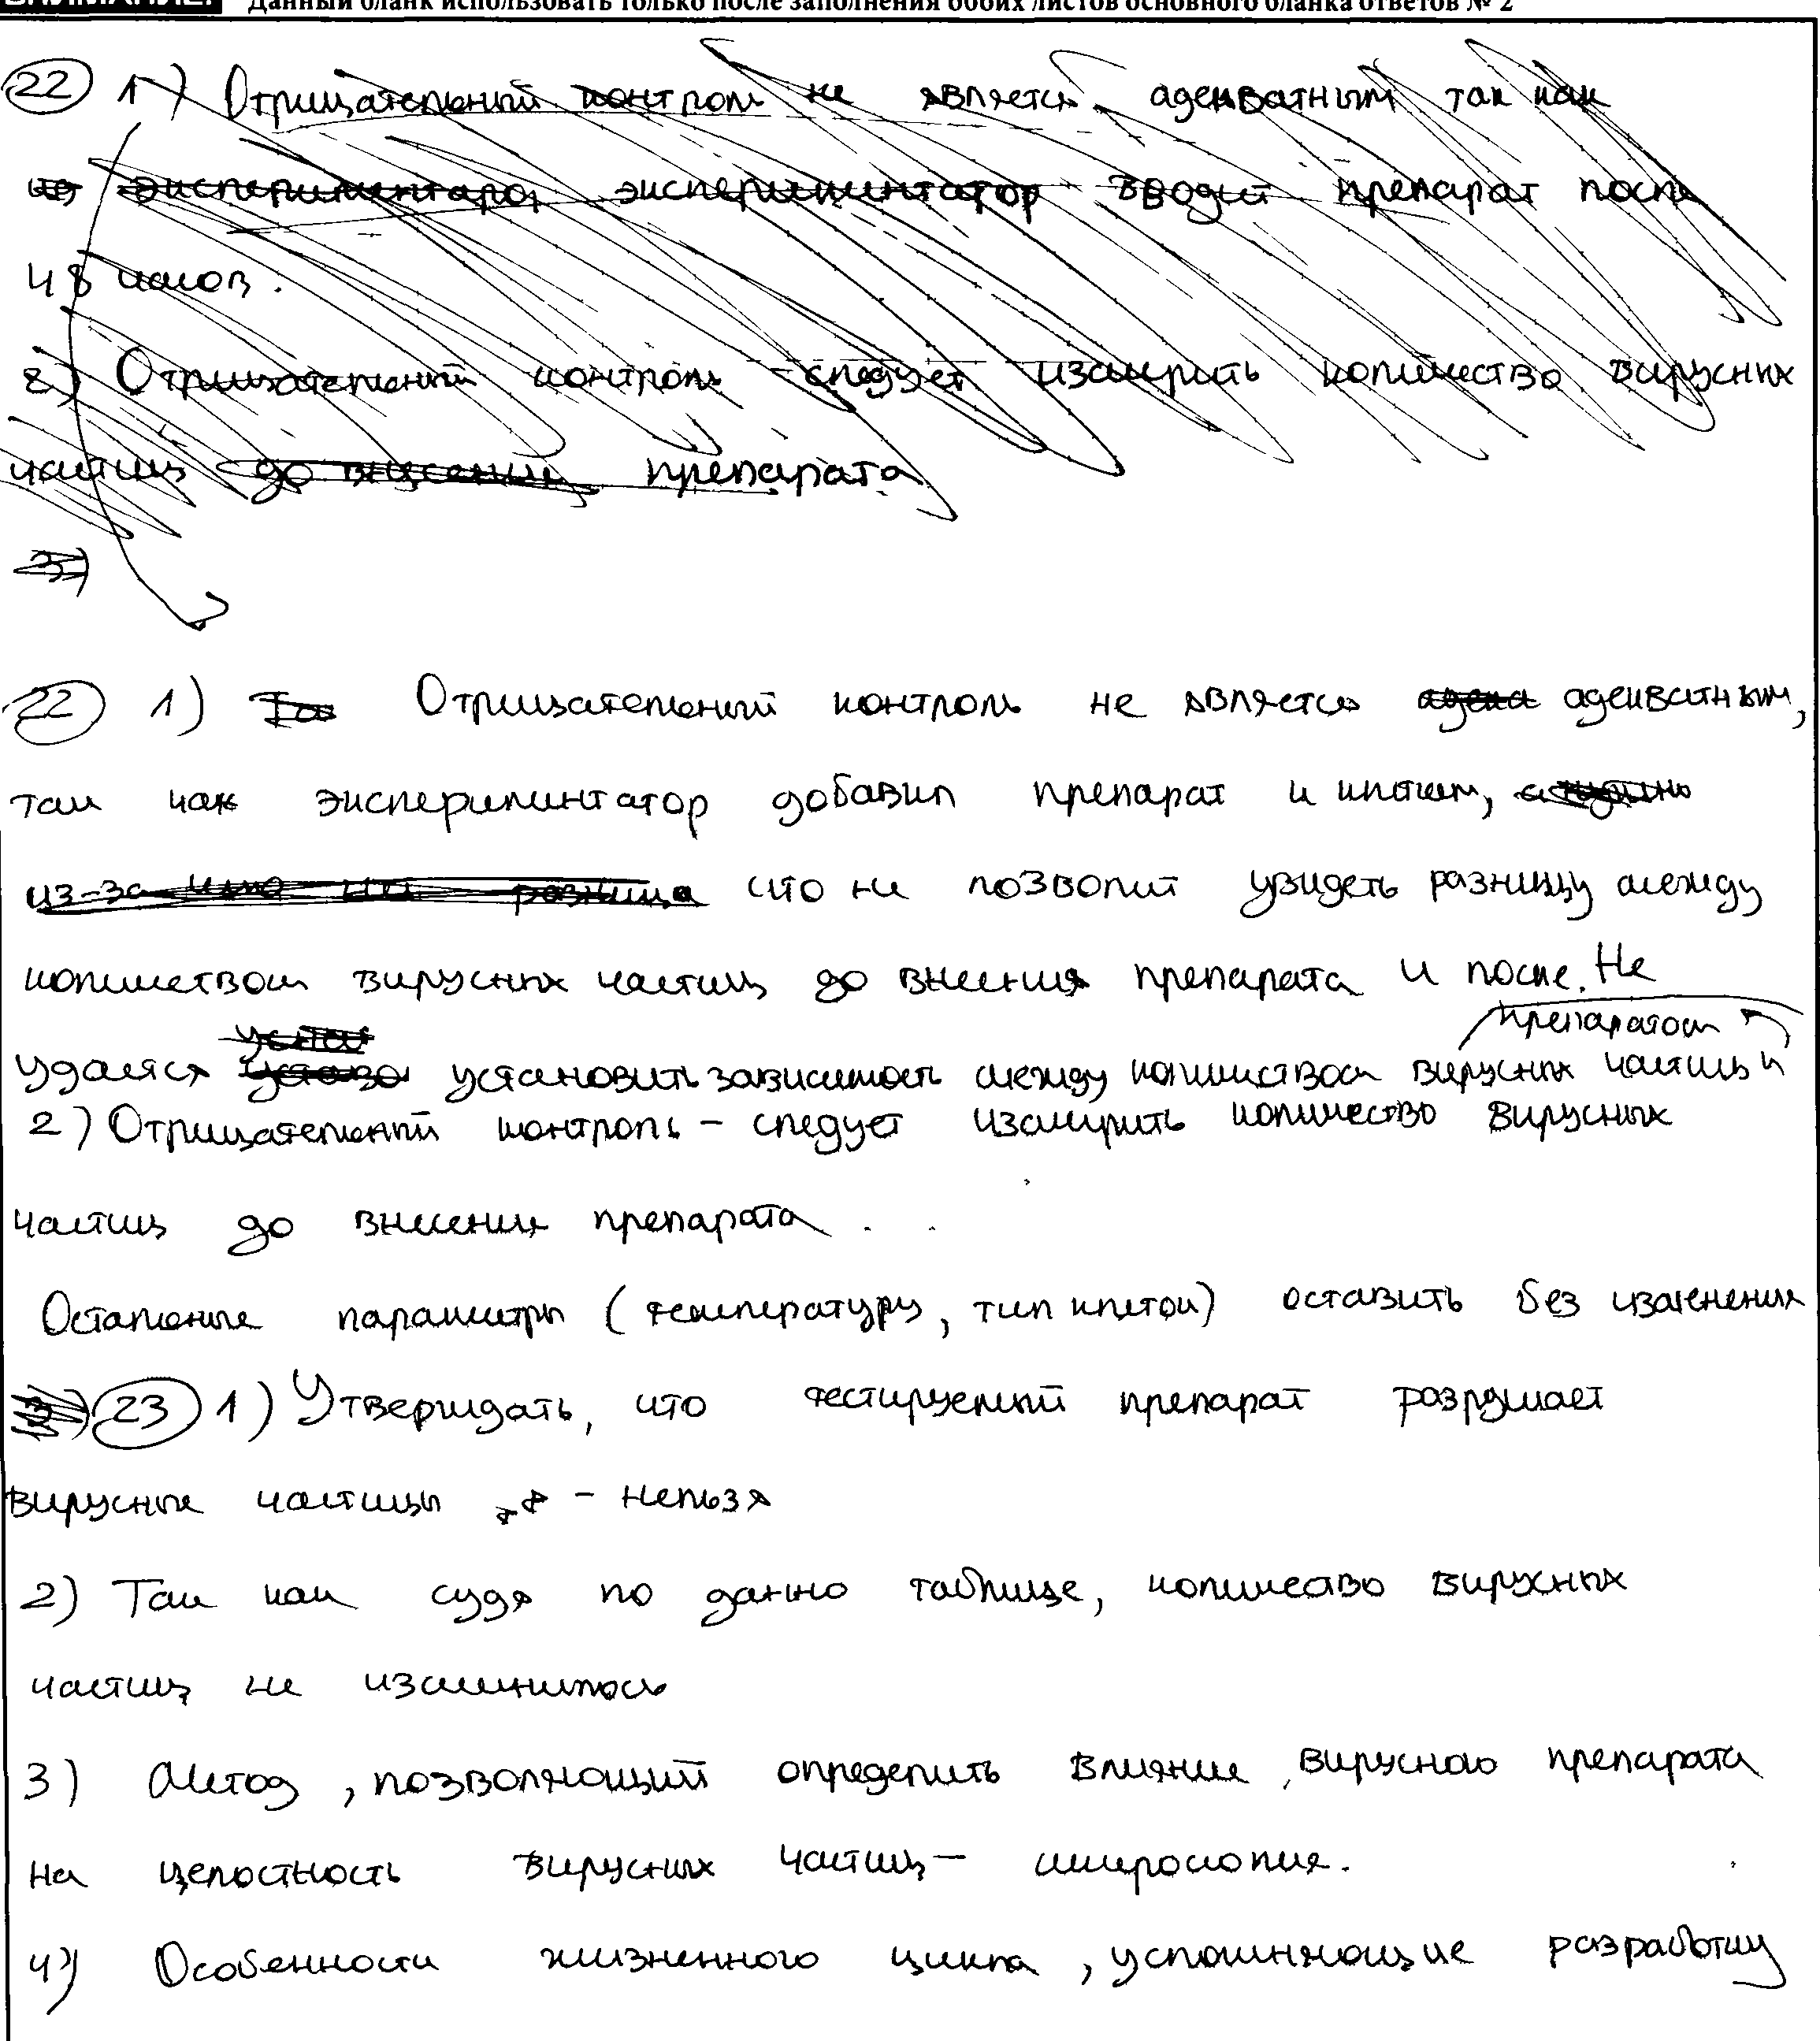 Данный бланк использовать только после заполнения обоих листов основного бланка ответов № 2
22 1) Отрицательный контроль не является адекватным так как
экспериментатор вводит препарат после
48 часов.
2) Отрицательный контроль - следует измерить количество вирусных
частиц до внесения препарата
3)
22 1) Отрицательный контроль не является адекватным,
так как экспериминтатор добавил препарат к клеткам,
что не позволит увидеть разницу между
количеством вирусных частиц до внесения препарата и после. Не
препаратом
удается установить зависимость между количеством вирусных частиц и
2) Отрицательный контроль - следует измерить количество вирусных
частиц до внесения препарата.
Остальные параметры (температуру, тип клеток) оставить без изменения
23 1) Утверждать, что тестируемый препарат разрушает
вирусные частицы - нельзя
2) Так как судя по данно таблице, количество вирусных
частиц не изменилось
3) Метод, позволяющий определить влияние вирусного препарата
на целостность вирусных частиц - микроскопия.
4) Особенности жизненного цикла, усложняющие разработку